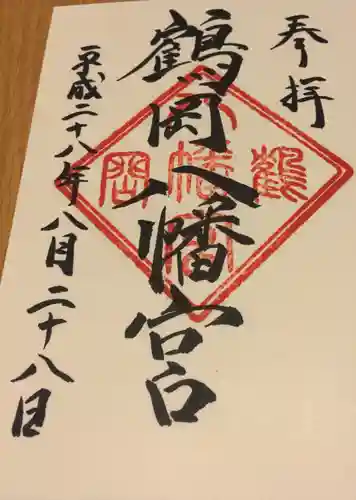 奉拝
鶴岡八幡宮
平成二十八年八月二十八日